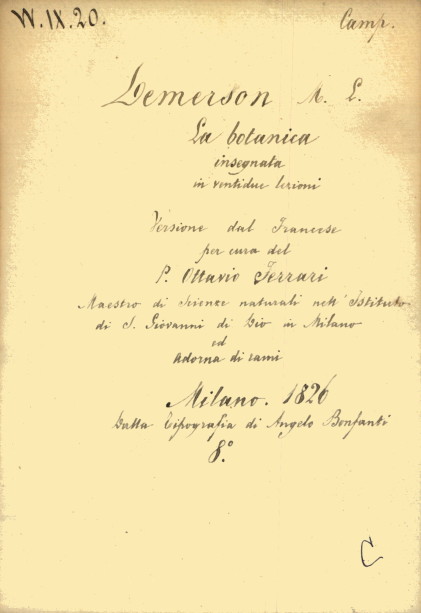 W.IX.20.
Camp.
Demerson M. L.
La botanica
insegnata
in ventidue lezioni
Versione dal Francese
per cura del
P. Ottavio Ferrari
Maestro di Scienze naturali nell'Istituto
di S. Giovanni di Dio in Milano
ed
Adorna di rami
Milano. 1826
Dalla Tipografia di Angelo Bonfanti
8.°
C